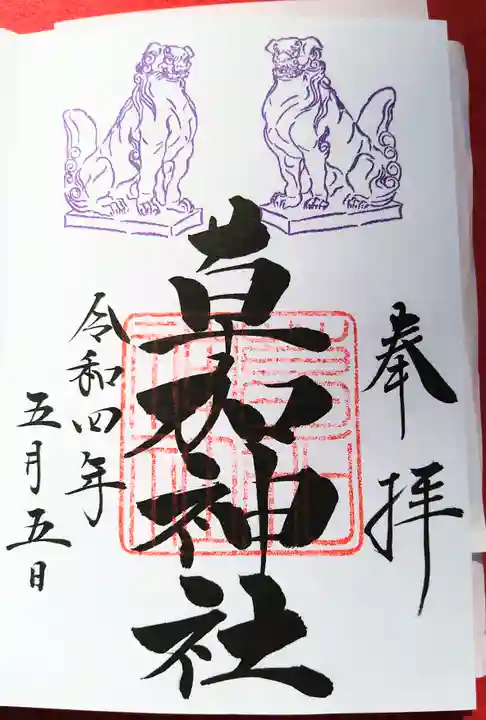 奉拝
草加神社
令和四年
五月五日